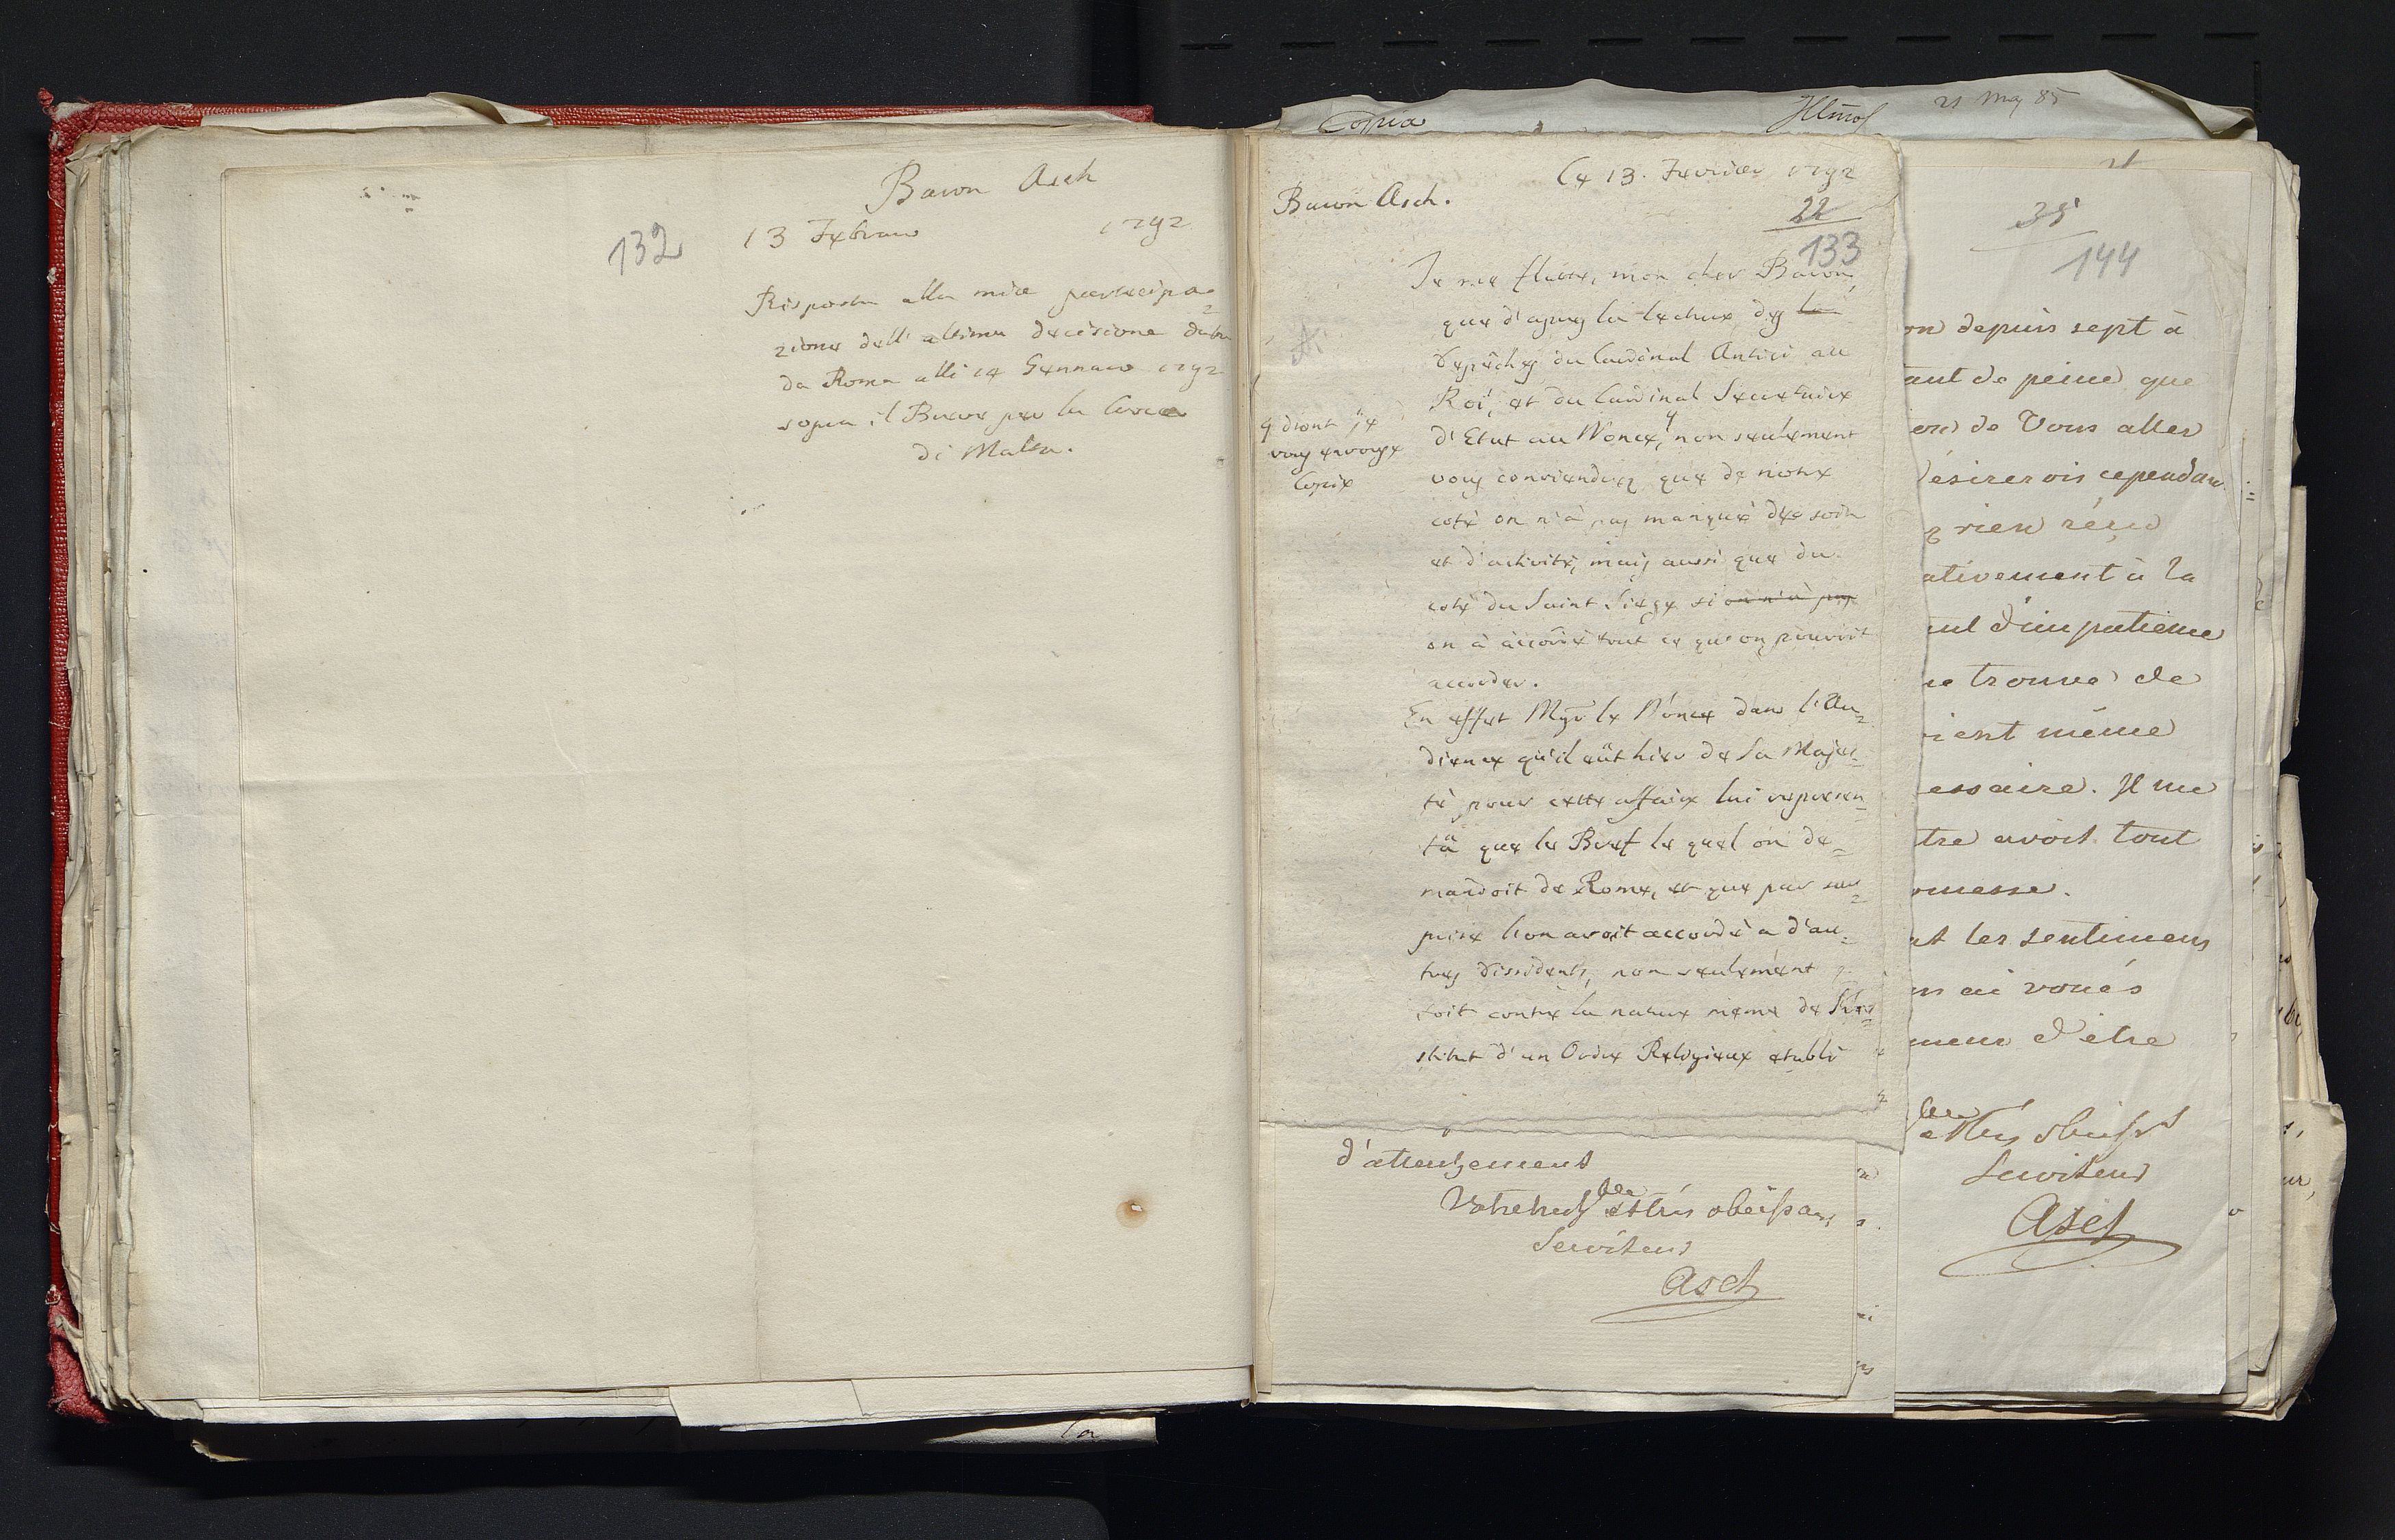 Baron Asch
132
13 Febraro 1792
Risposta alla mia partecipa=
zione dell' ultima decisione data
da Roma alli 14 Gennaro 1792
sopra il Breve per la Croce
di Malta.
Copia
Illmoſ
21 May 85
Le 13. Fevrier 1792
Baron Asch.
22
133
Je me flatte, mon cher Baron,
que d'apres la lecture des
depêches du Cardinal Antici au
Roi, et du Cardinal Secretaire
d'Etat au Nonce, non seulement
dont je
vous envoye
Copie
vous conviendrez que de notre
coté on n'à pas manqué de soin
et d'activité, mais aussi que du
coté du Saint Siege si on n'à pas
on à accordé tout ce qu'on pouvoit
accorder.
En effet Mgr le Nonce dans l'Au=
dience qu'il eût hier de Sa Majes=
té pour cette affaire lui represen=
tà que le Bref le quel on de=
mandoit de Rome, et que par sur=
prise l'on avoit accordé a d'au=
tres dissidents, non seulement
soit contre la nature meme de l'In=
stitut d'un Ordre Religieux etabli
d'attachement
Votre très hble et très obéissant
Serviteur
Asch
35
144
on depuis sept à
tant de peine que
de Vous aller
désirerois cependant
rien réçu
ativement à la
d'impatience
trouve de
vient même
essaire. Il me
tre avoit tout
omesse.
et les sentimens
ai voués
d'être
hble
et très obéisst
Serviteur
Asch